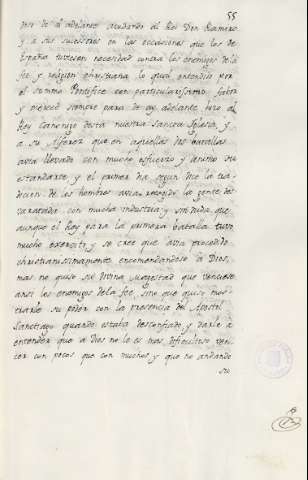 55
de al adelante ayudando al Rey Don Ramiro
y a sus sucesores en las occasiones que los de
España tuviesen necesidad contra los enemigos de la
fee y religion christiana lo qual entendido por
el summo Pontifice con particularissimo fabor
y merced siempre para de oy adelante hizo al
Rey Canonigo desta nuestra Sancta Iglesia, y
a su Alferez que en aquellas dos batallas
avia llevado con mucho esfuerzo y animo su
estandarte y el primer dia segun dice la tra
dicion de los hombres avia recogido la gente des
varatada con mucha industria y sin duda que
aunque el Rey para la primera batalla tuvo
mucho exercito, y se cree que avia procedido
christianissimamente encomendandose à Dios,
mas no quiso su Divina Magestad que venciese
ansi los enemigos de la fee, sino que quiso mos
trarle su poder con la presencia del Apostol
Sanctiago quando estaba desconfiado, y darle a
entender que a Dios no le es mas dificultoso ven
zer con pocos que con muchos y que no andando
su